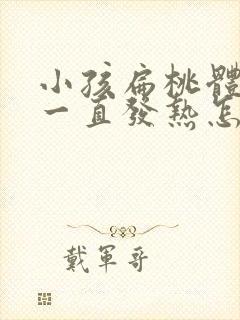 小孩扁桃體
一直發熱怎
戴軍哥